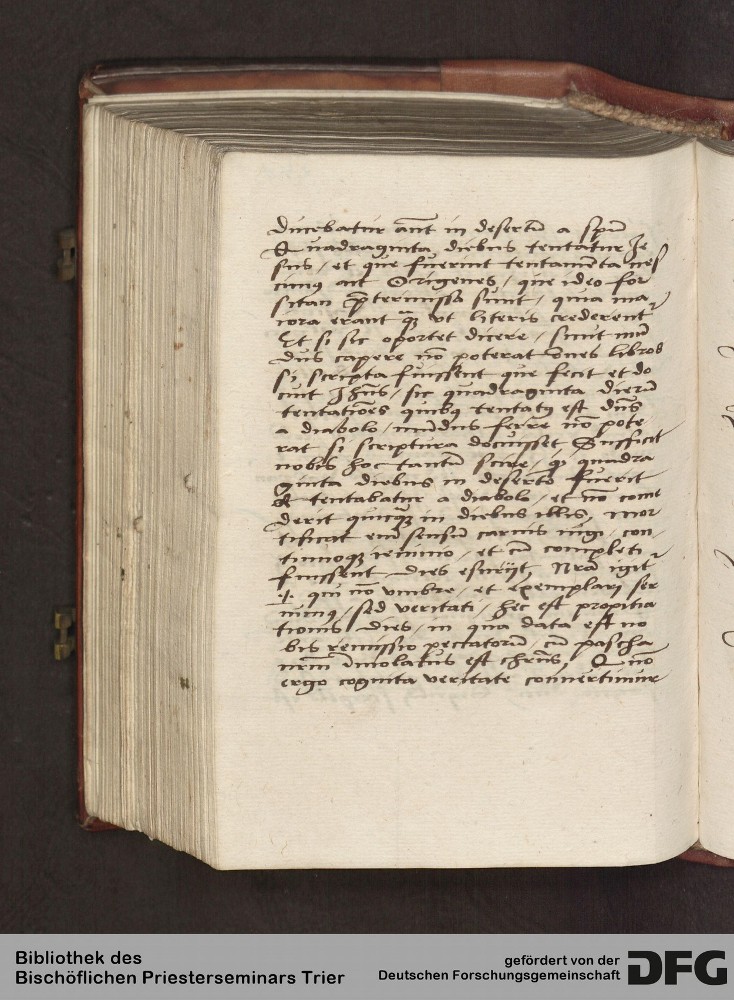 ducebatur aūt in desertū a spū
Quadraginta diebus tentatur Je
sus / et que fuerint tentamēta nes
cimꝰ ait Origenes / que ideo for
sitan p̄termissa sunt / quia ma
iora erant qͣꝫ vt literis crederent͛
Et si sic oportet dicere / sicut mū
dus capere nō poterat ōnes libros
si scripta fuissent que fecit et do
cuit Jhūs / sic quadraginta dierū
tentatiōes quibꝰ tentatꝰ est dn̄s
a diabolo / mundus ferre nō pote
rat si scriptura docuisset Sufficit
nobis hoc tantū scire / qꝫ quadra
ginta diebus in deserto fuerit
& tentabatur a diabolo / et nō come
derit quicqͣꝫ in diebus illis, mor
tificat enī sensū carnis iugi / con
tinuoqꝫ ieiunio / et cū completi
fuissent dies esuriit,
qui nō vmbre / et exemplari ser
uimꝰ / sed veritati / hec est propitia
tionis dies / in qua data est no
bis remissio peccatorū / cū pascha
nr̄m īmolatus est chrūs, Q nō
ergo cognita veritate conuertimur
Bibliothek des
Bischöflichen Priesterseminars Trier
gefördert von der
Deutschen Forschungsgemeinschaft
DFG